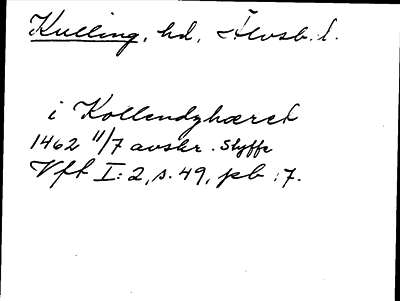 Kulling, hd, Älvsb. l.
i Kollendzhæret
1462 11/7 avskr. Styffe
Vft I:2, s. 49, pb :7.